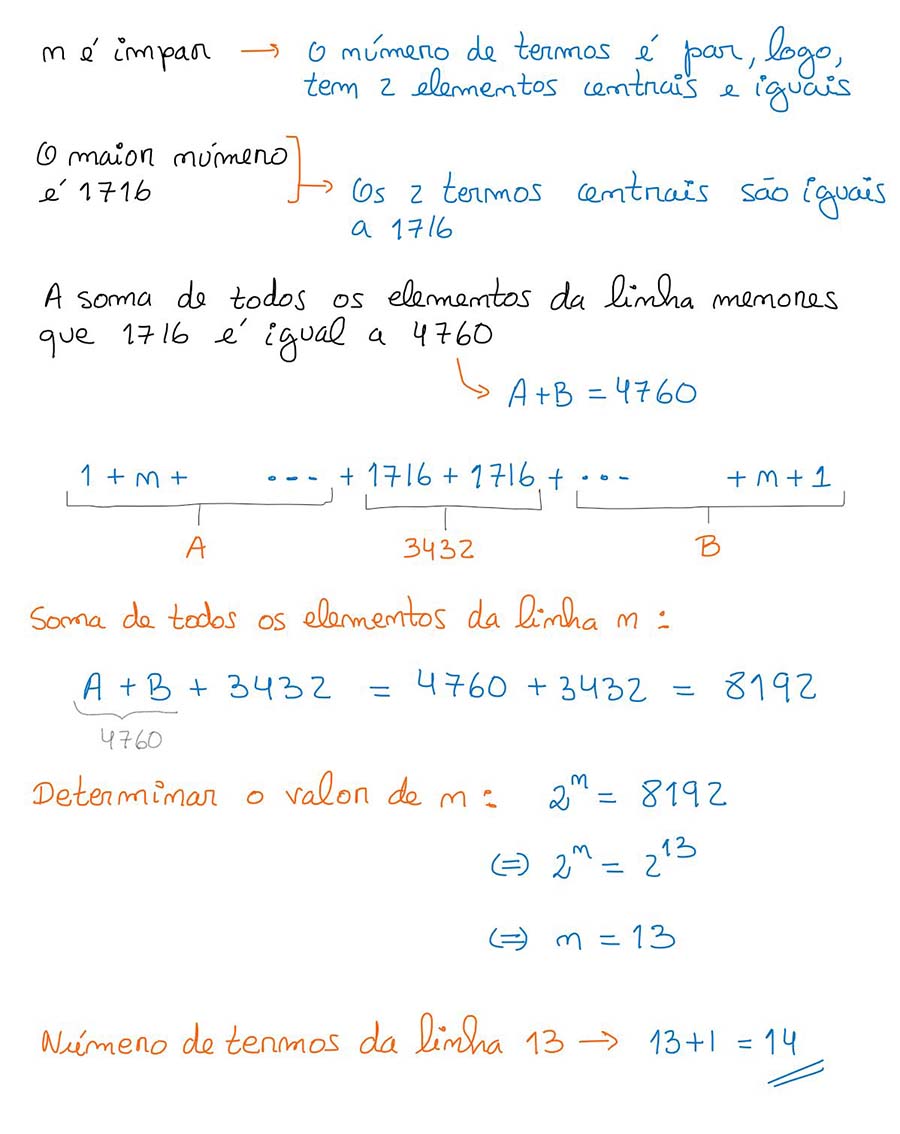 n é ímpar → O número de termos é par, logo,
tem 2 elementos centrais e iguais
O maior número
é 1716
→ Os 2 termos centrais são iguais
a 1716
A soma de todos os elementos da linha menores
que 1716 é igual a 4760
A+B = 4760
1 + n + ... + 1716 + 1716 + ... + n + 1
A 3432 B
Soma de todos os elementos da linha n :
A + B + 3432 = 4760 + 3432 = 8192
4760
Determinar o valor de n : 2ⁿ = 8192
(=) 2ⁿ = 2¹³
(=) n = 13
Número de termos da linha 13 → 13+1 = 14